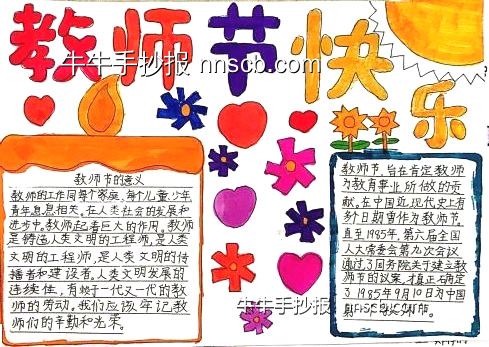 教师节快乐
牛牛手抄报 nnscb.com
教师节的意义
教师的工作同每个家庭，每个儿童，少年
青年息息相关。在人类社会的发展和
进步中，教师起着巨大的作用。教师
是铸造人类文明的工程师，是人类
文明的工程师，是人类文明的传
播者和建设者。人类文明发展的
连续性，有赖于一代又一代的教
师的劳动。我们应该牢记教
师们的辛勤和光荣。
教师节，旨在肯定教师
为教育事业所做的贡
献。在中国近现代史上有
多个日期曾作为教师节。
直至1985年，第六届全国
人大常委会第九次会议
通过了国务院关于建立教
师节的议案，才真正确定
了1985年9月10日为中国
牛牛手抄报 nnscb.com